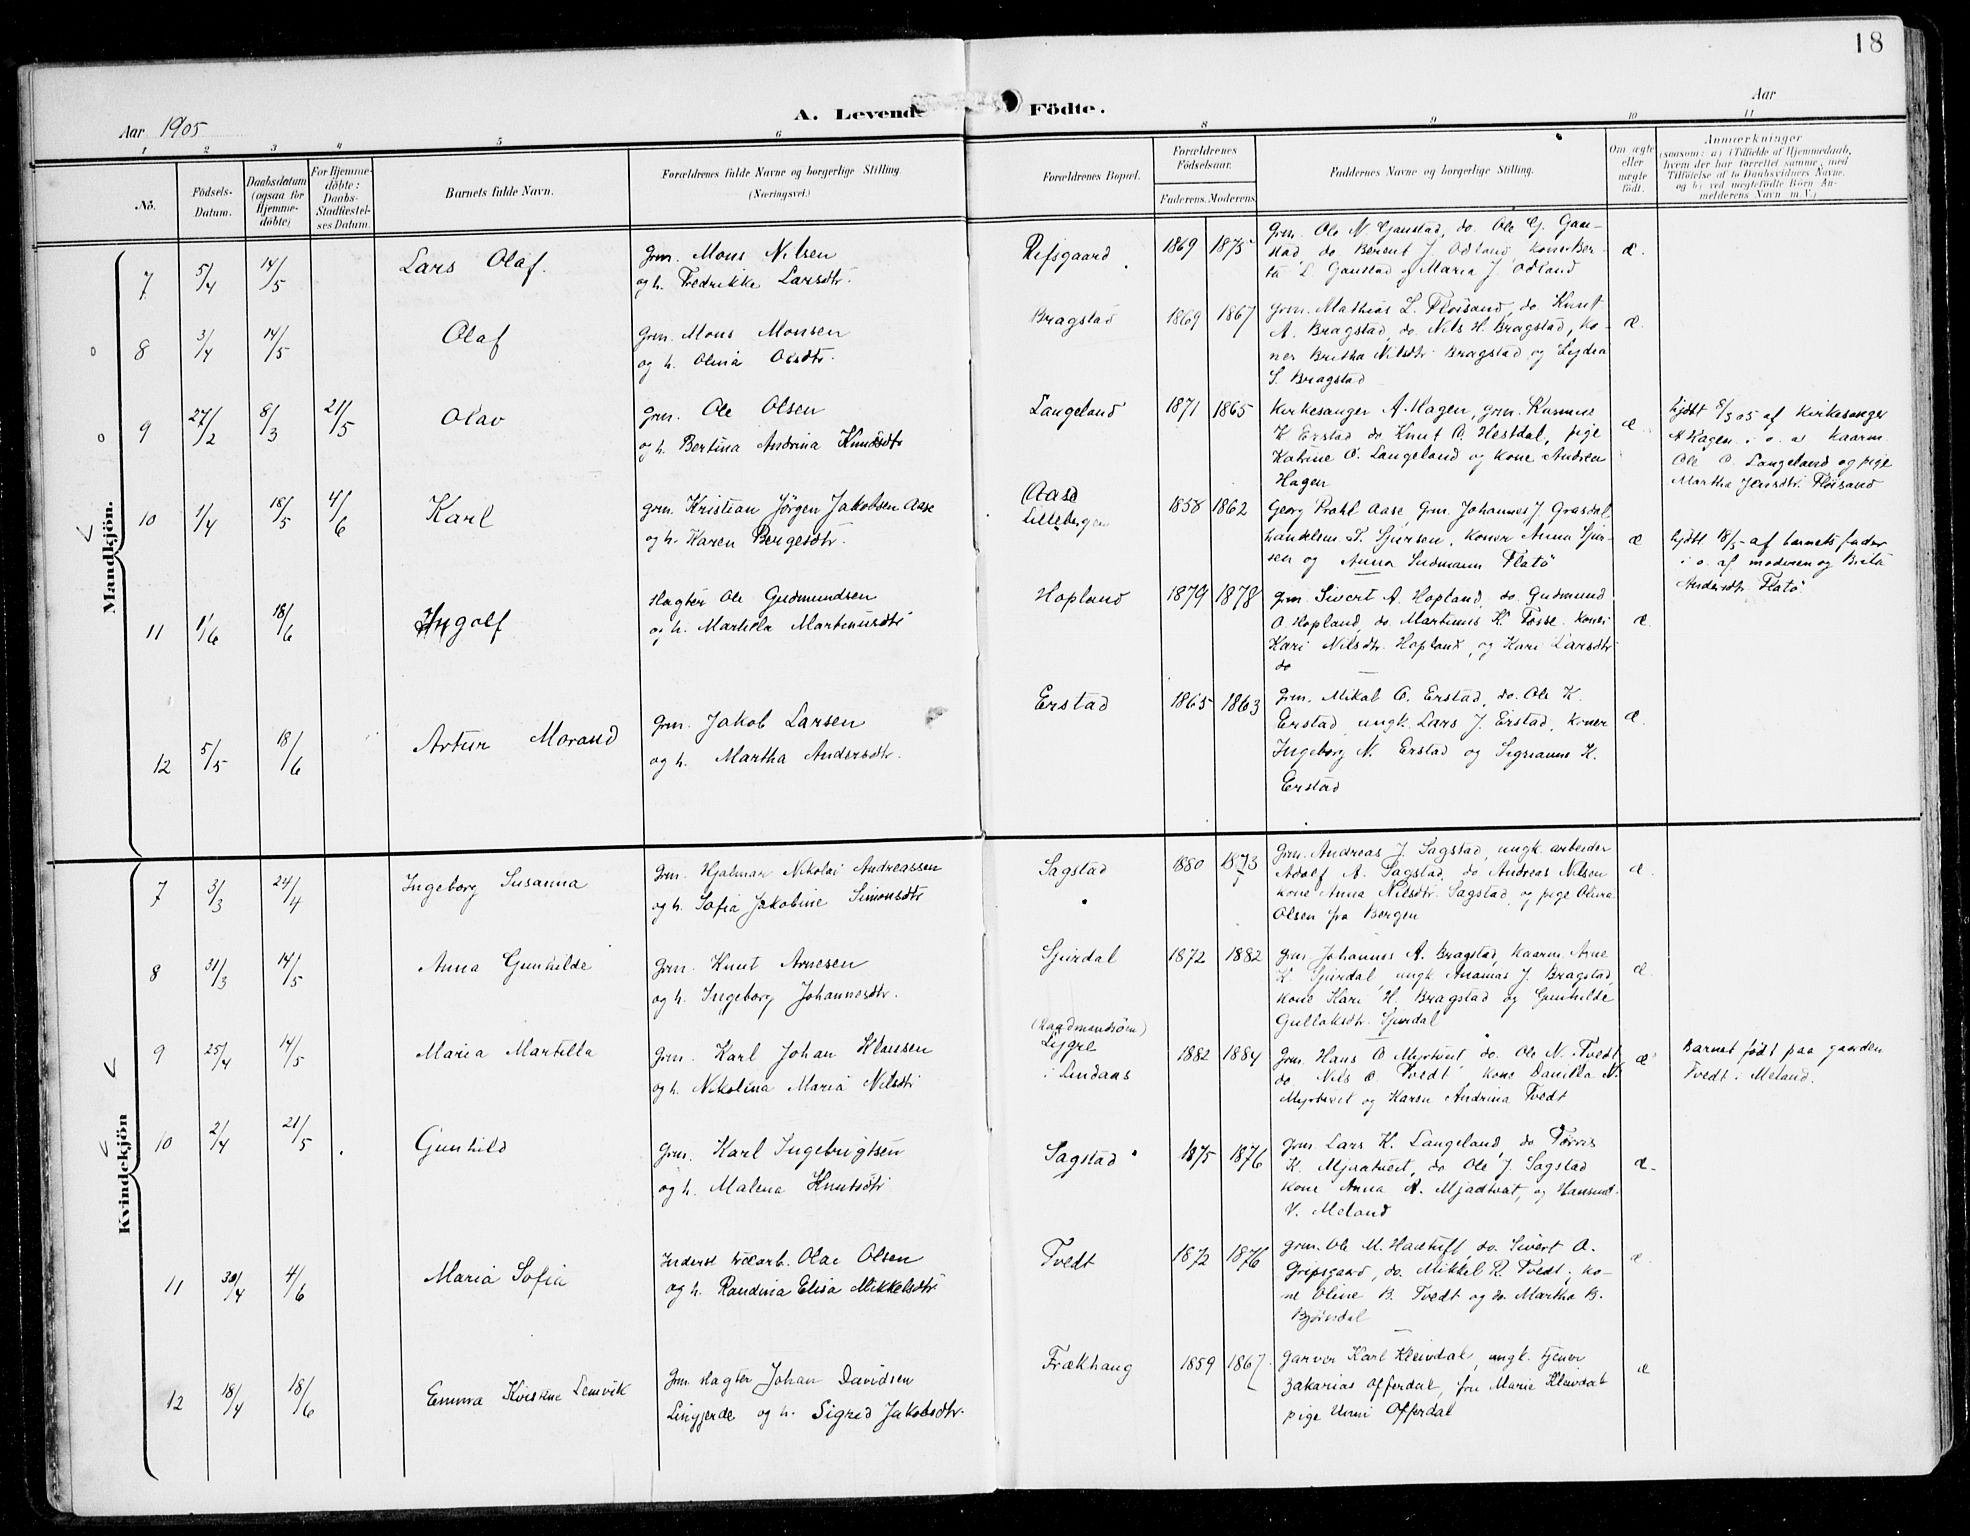 18
A. Levende Födte.
Aar 1905
Aar
1 2 3 4 5 6 8 9 10 11
No.
Födsels-Datum.
Daabsdatum (ogsaa for Hjemme-döbte)
For Hjemme-döbte: Daabs-Stadfæstel-ses Datum.
Barnets fulde Navn.
Forældrenes fulde Navne og borgerlige Stilling. (Næringsvei.)
Forældrenes Bopæl.
Forældrenes Födselsaar.
Faderens. Moderens.
Faddernes Navne og borgerlige Stilling.
Om ægte eller uægte födt.
Anmærkninger (saasom: a) i Tilfælde af Hjemmedaab, hvem der har forrettet samme, med Tilföielse af to Daabsvidners Navne, og b) ved uægtefödte Börn An-melderens Navn m. V.)
Mandkjön.
7 5/4 14/5 Lars Olaf.
Grm. Mons Nilsen
og h. Fredrikke Larsdtr.
Refsgaard 1869 1875
Grm. Ole N. Gaustad, do. Ole G. Gau-
stad, do. Berent J. Odland, koner Ber-
ta L. Gaustad og Maria J. Odland
æ.
8 3/4 14/5 Olaf
Grm. Mons Monsen
og h. Olina Olsdtr.
Bragstad 1869 1867
Grm. Mathias L. Floisand, do. Knut
A. Bragstad, do. Nils H. Bragstad, ko-
ner Britha Nilsdtr. Bragstad og Lydia
S. Bragstad
æ.
9 27/2 8/3 21/5 Olav
Grm. Ole Olsen
og h. Bertina Andrina Knutsdtr
Langeland 1871 1865
Kirkesanger A. Hagen, grm. Rasmus
K. Erstad, do. Knut O. Hestdal, pige
Katrine O. Langeland og kone Andrea
Hagen
æ.
hjdbt 8/3 05 af Kirkesanger
A Hagen i o. a. kaarm.
Ole O. Langeland og pige
Martha Jensdtr. Floisand
10 1/4 18/5 4/6 Karl
grm. Kristian Jörgen Jakobsen Aase
og h. Karen Bergesdtr.
(Aase)
Lillebergen 1858 1862
Georg Prahl Aase, Grm. Johannes J. Grasdal,
handelsm. T. Sjursen, koner Anna Sjur-
sen og Anna Sudmann Flatö
æ
hjdbt 18/5 af barnets fader
i o. af moderen og Brita
Andersdtr. Flatö
11 1/6 18/6 Ingolf
Slagter Ole Gudmundsen
og h. Martila Martinusdtr
Hopland 1879 1878
grm. Sivert A. Hopland, do. Gudmund
O. Hopland, do. Martinus K. Fosse, koner
Kari Nilsdtr. Hopland, og Kari Larsdtr
do
æ.
12 5/5 18/6 Artur Morand
Grm. Jakob Larsen
og h. Martha Andersdtr.
Erstad 1865 1863
Grm. Mikal O. Erstad, do. Ole K.
Erstad, ungk. Lars J. Erstad, koner
Ingeborg N. Erstad og Sigrianna K.
Erstad
æ.
Kvindekjön
7 3/3 24/4 Ingeborg Susanna
Grm. Hjalmar Nikolai Andreassen
og h. Sofia Jakobine Simonsdtr
Sagstad 1880 1873
Grm. Andreas J. Sagstad, ungk. arbeider
Adolf A. Sagstad, do Andreas Nilsen
kone Anna Nilsdtr. Sagstad, og pige Olina
Olsen fra Bergen
æ.
8 31/3 14/5 Anna Gunhilde
Grm. Knut Arnesen
og h. Ingeborg Johannesdtr.
Sjurdal 1872 1882
Grm Johannes A. Bragstad, kaarm. Arne
K. Sjurdal, ungk. Ananias J. Bragstad,
kone Kari H. Bragstad og Gunhilde
Gullaksdtr. Sjurdal
æ.
9 25/4 14/5 Maria Martilla
Grm. Karl Johan Klausen
og h. Nikolina Maria Nilsdtr
Lygre
i Lindaas 1882 1884
Grm. Hans O Myrtveit, do. Ole N. Tvedt
do Nils O. Tvedt, kone Danilla N.
Myrtveit og Karen Andrina Tvedt
æ
Barnet födt paa gaarden
Tvedt i Meland.
10 2/4 21/5 Gunhild
Grm. Karl Ingebrigtsen
og h. Malena Knutsdtr
Sagstad 1875 1876
Grm Lars K. Langeland, do Torris
K. Mjaatveit, do Ole J. Sagstad
kone Anna A. Mjaatveit, og
V. Meland
æ
11 30/4 4/6 Maria Sofia
Inderst Olai Olsen
og h. Randina Elisa Mikkelsdtr
Tvedt 1872 1876
grm. Ole M. do. Sivert O.
Gripsgaard, do. Mikkel R. Tvedt, ko-
ne Oline B. Tvedt og do. Martha B.
Björndal
æ.
12 18/4 18/6 Emma Kristine Lemvik
Grm. slagter Johan Davidsen
Lingjerde og h. Sigrid Jakobsdtr.
Frækhaug 1859 1867
Garver Karl Kleivdal, ungk. tjener
Zakarias Offerdal, fru Marie Kleivdal
pige Unni Offerdal
æ